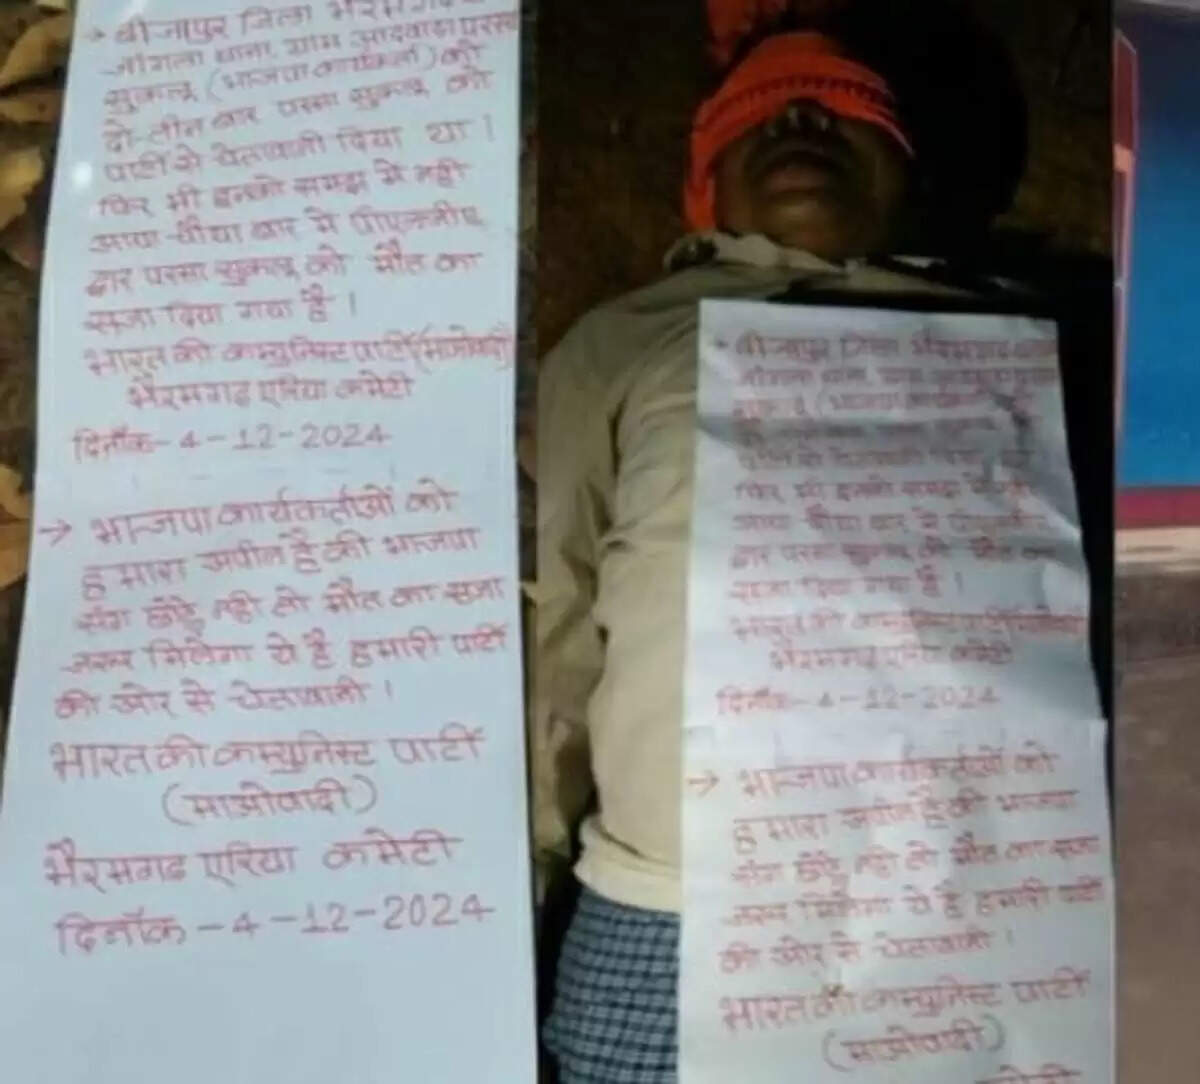 → बीजापुर जिला भैरमगढ
जांगला थाना, ग्राम आदवाडा परसा
सुकलू (भाजपा कार्यकर्ता) को
दो-तीन बार परसा सुकलू को
पार्टी से चेतावनी दिया था ।
फिर भी इनको समझ में नही
आया चौथा बार में पीएलजीए
द्वार परसा सुकलू को मौत का
सजा दिया गया है ।
भारत की कम्युनिस्ट पार्टी (माओवादी)
भैरमगढ एरिया कमेटी
दिनाँक-4-12-2024
→ भाजपा कार्यकर्ताओं को
हमारा अपील है की भाजपा
संग छोड़े नही तो मौत का सजा
जरूर मिलेगा ये है हमारी पार्टी
की ओर से चेतावानी ।
भारत की कम्युनिस्ट पार्टी
(माओवादी)
भैरमगढ एरिया कमेटी
दिनाँक-4-12-2024
→ बीजापुर जिला भैरमगढ
जांगला थाना, ग्राम
सुकलू (भाजपा कार्यकर्ता) को
दो-तीन बार परसा सुकलू को
पार्टी से चेतावनी दिया था
फिर भी इनको समझ में नही
आया चौथा बार में पीएलजीए
द्वार परसा सुकलू को मौत का
सजा दिया गया है ।
भारत की कम्युनिस्ट पार्टी (माओवादी)
भैरमगढ एरिया कमेटी
दिनाँक-4-12-2024
→ भाजपा कार्यकर्ताओं को
हमारा अपील है की भाजपा
संग छोड़े नही तो मौत का सजा
जरूर मिलेगा ये है हमारी पार्टी
की ओर से चेतावानी ।
भारत की कम्युनिस्ट पार्टी
(माओवादी)
कमेटी